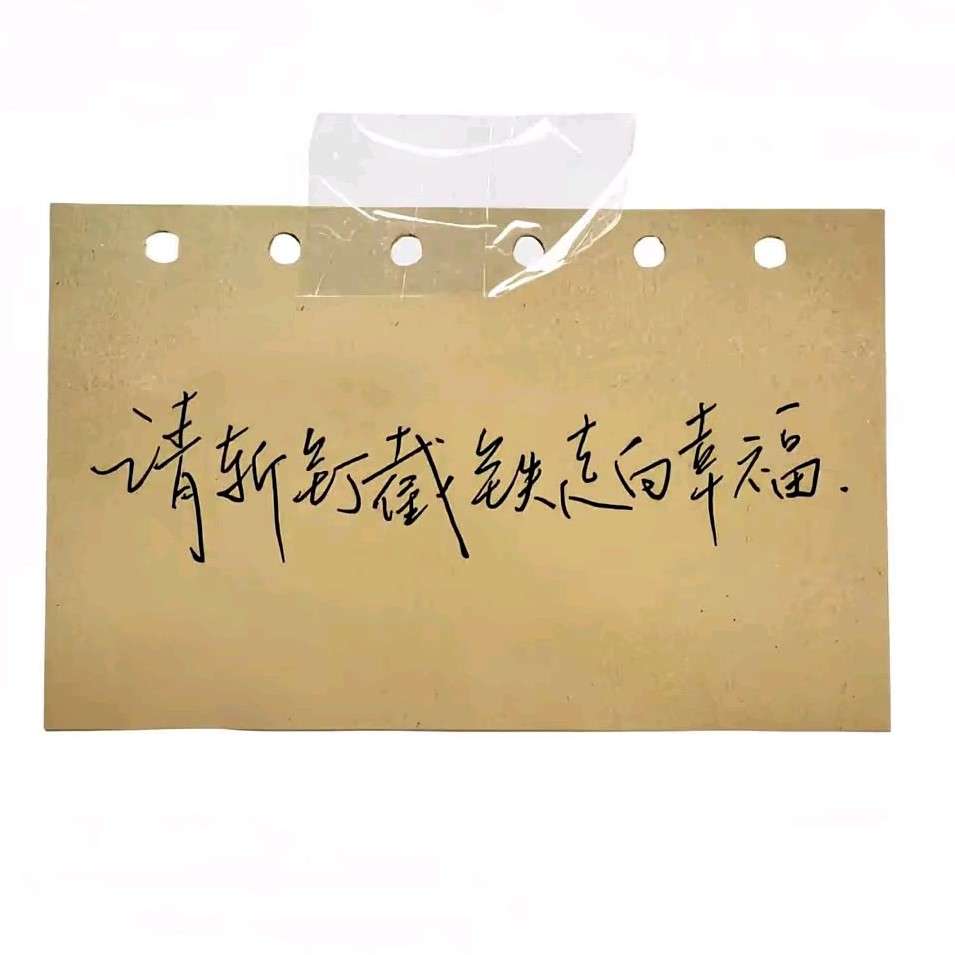 请斩钉截铁走向幸福.